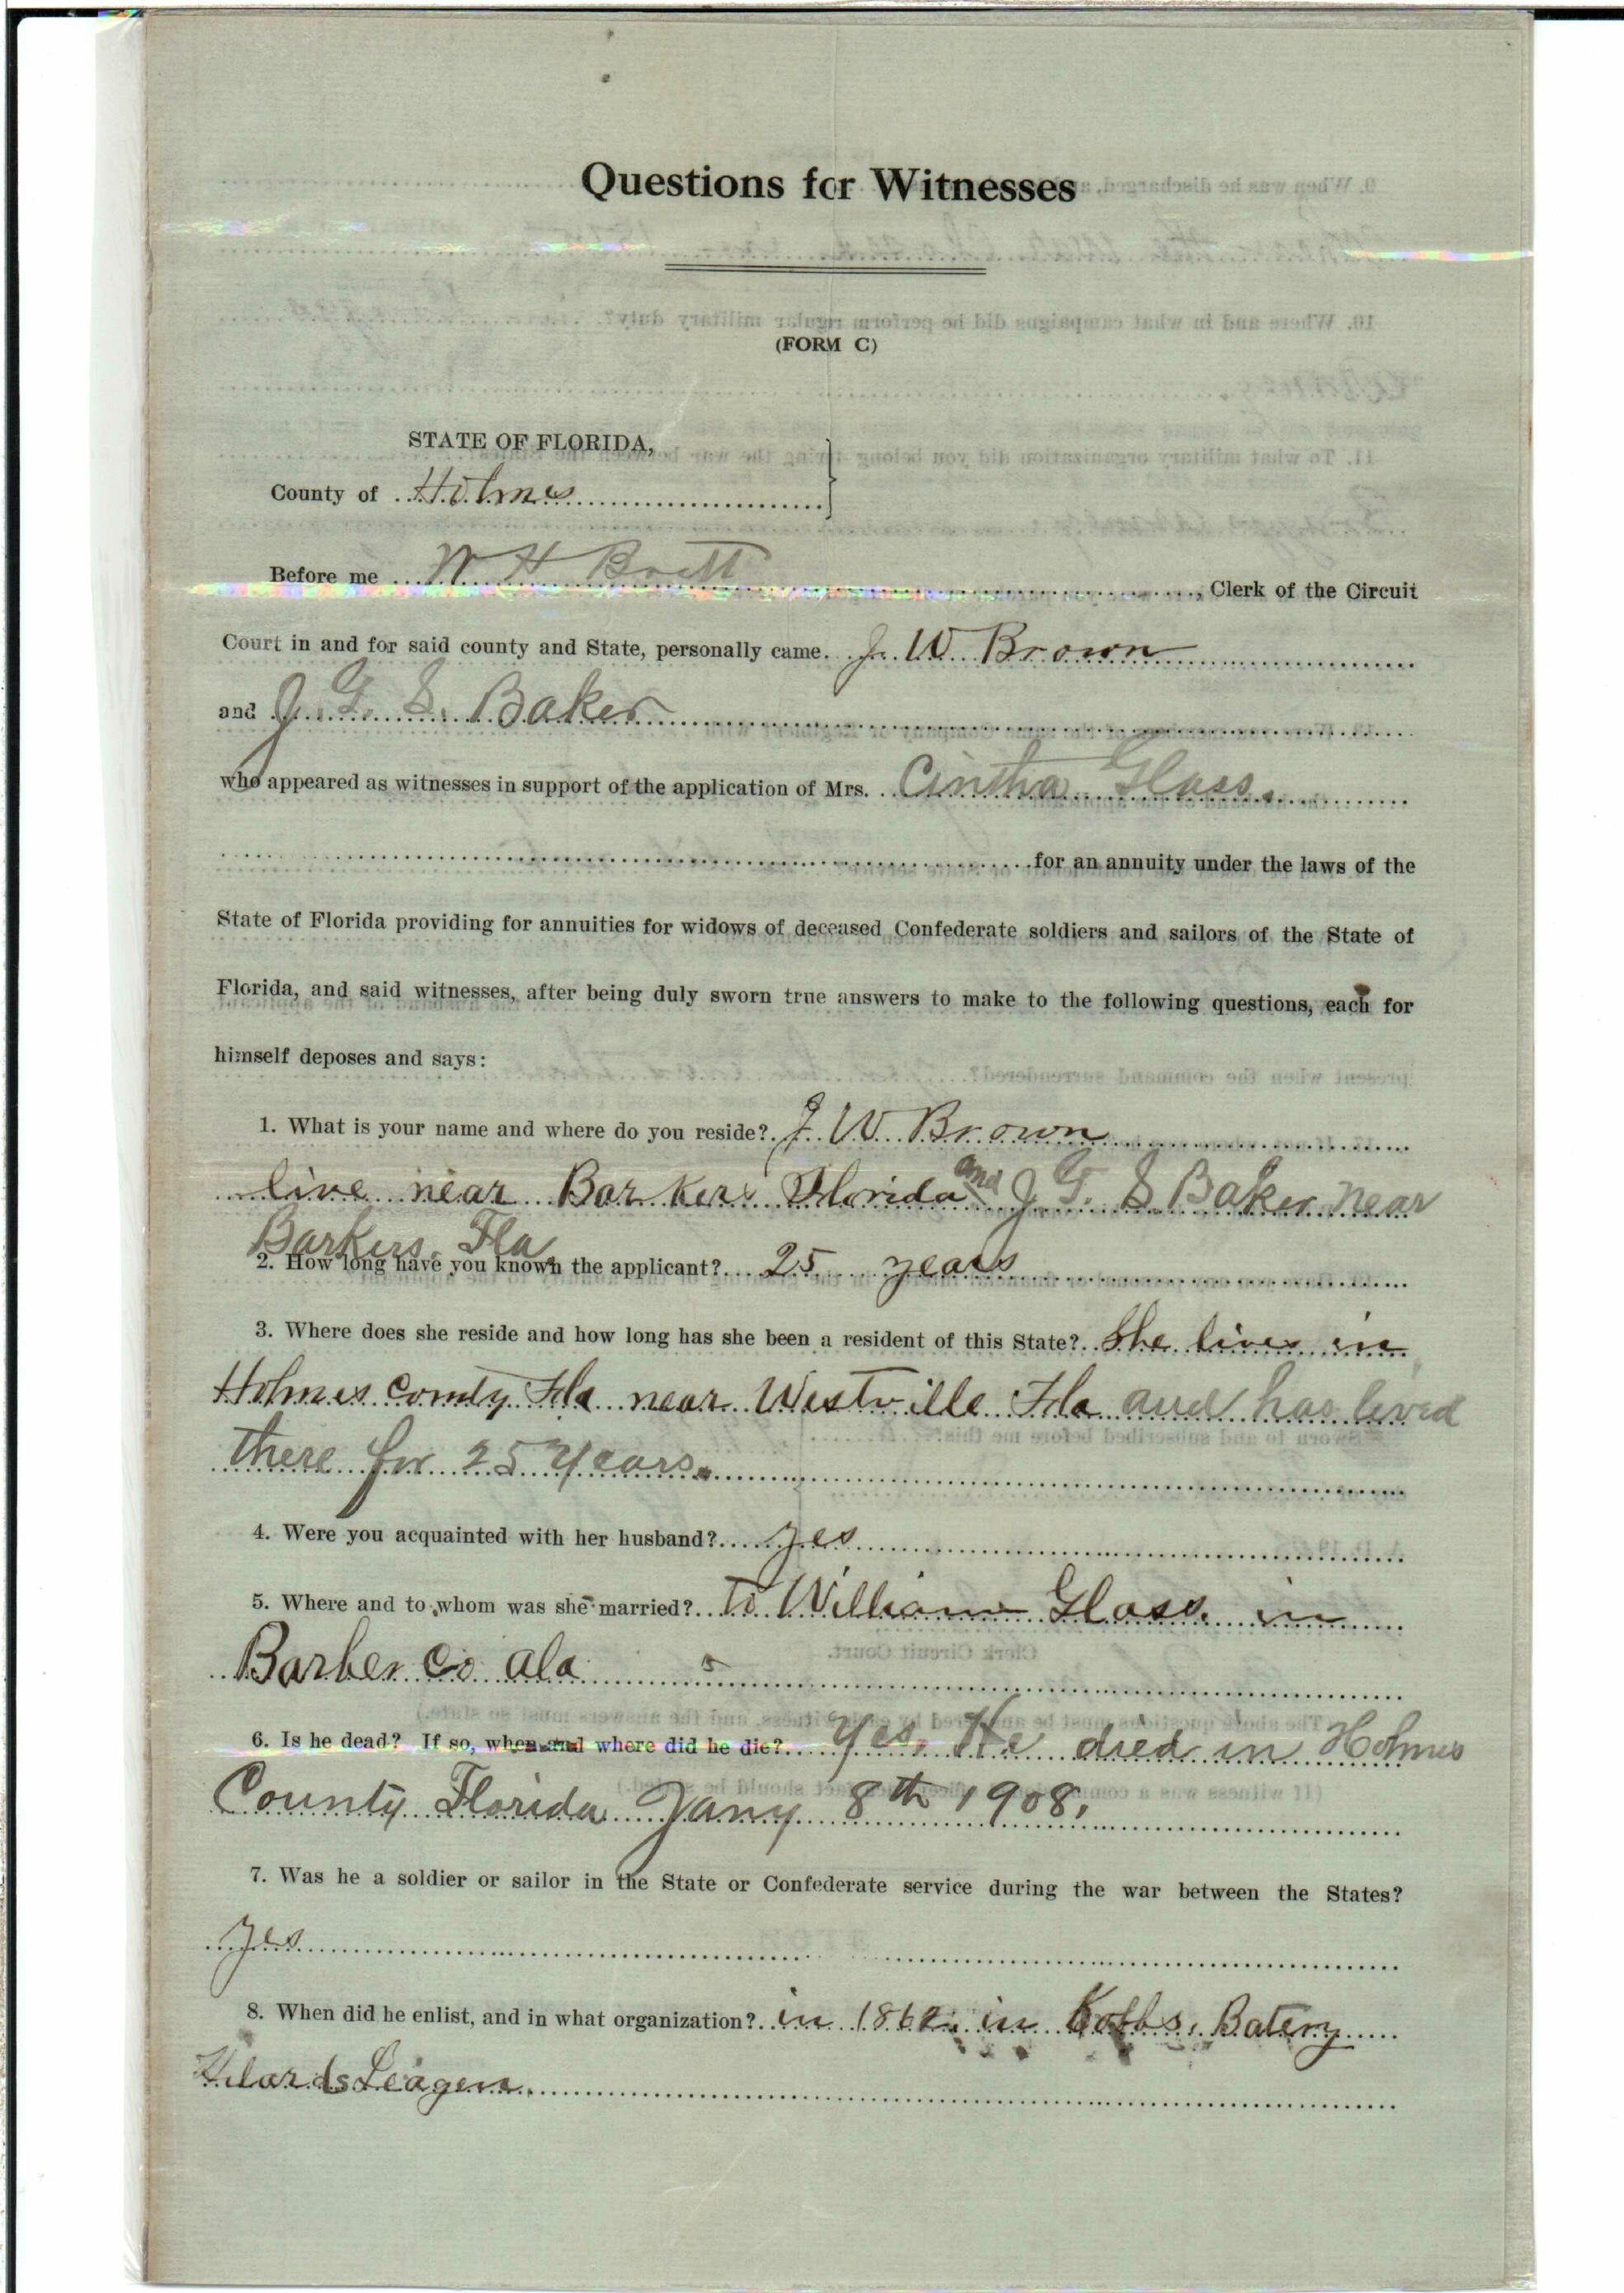 Questions for Witnesses
(FORM C)
STATE OF FLORIDA,
County of Holmes
Before me W H Brett , Clerk of the Circuit
Court in and for said county and State, personally came J. W Brown
and J. G. S. Baker
who appeared as witnesses in support of the application of Mrs. Cintha Glass.
for an annuity under the laws of the
State of Florida providing for annuities for widows of deceased Confederate soldiers and sailors of the State of
Florida, and said witnesses, after being duly sworn true answers to make to the following questions, each for
himself deposes and says:
1. What is your name and where do you reside? J. W. Brown
live near Barkers Florida and J G. S Baker near
Barkers, Fla
2. How long have you known the applicant? 25 years
3. Where does she reside and how long has she been a resident of this State? She lives in
Holmes County Fla near Westville Fla and has lived
there for 25 years.
4. Were you acquainted with her husband? yes
5. Where and to whom was she married? to William Glass. in
Barber Co ala
6. Is he dead? If so, when and where did he die? Yes, He died in Holmes
County Florida Jany 8th 1908.
7. Was he a soldier or sailor in the State or Confederate service during the war between the States?
yes
8. When did he enlist, and in what organization? in 1862. in Kolbs, Batery
Hilards Leagen.